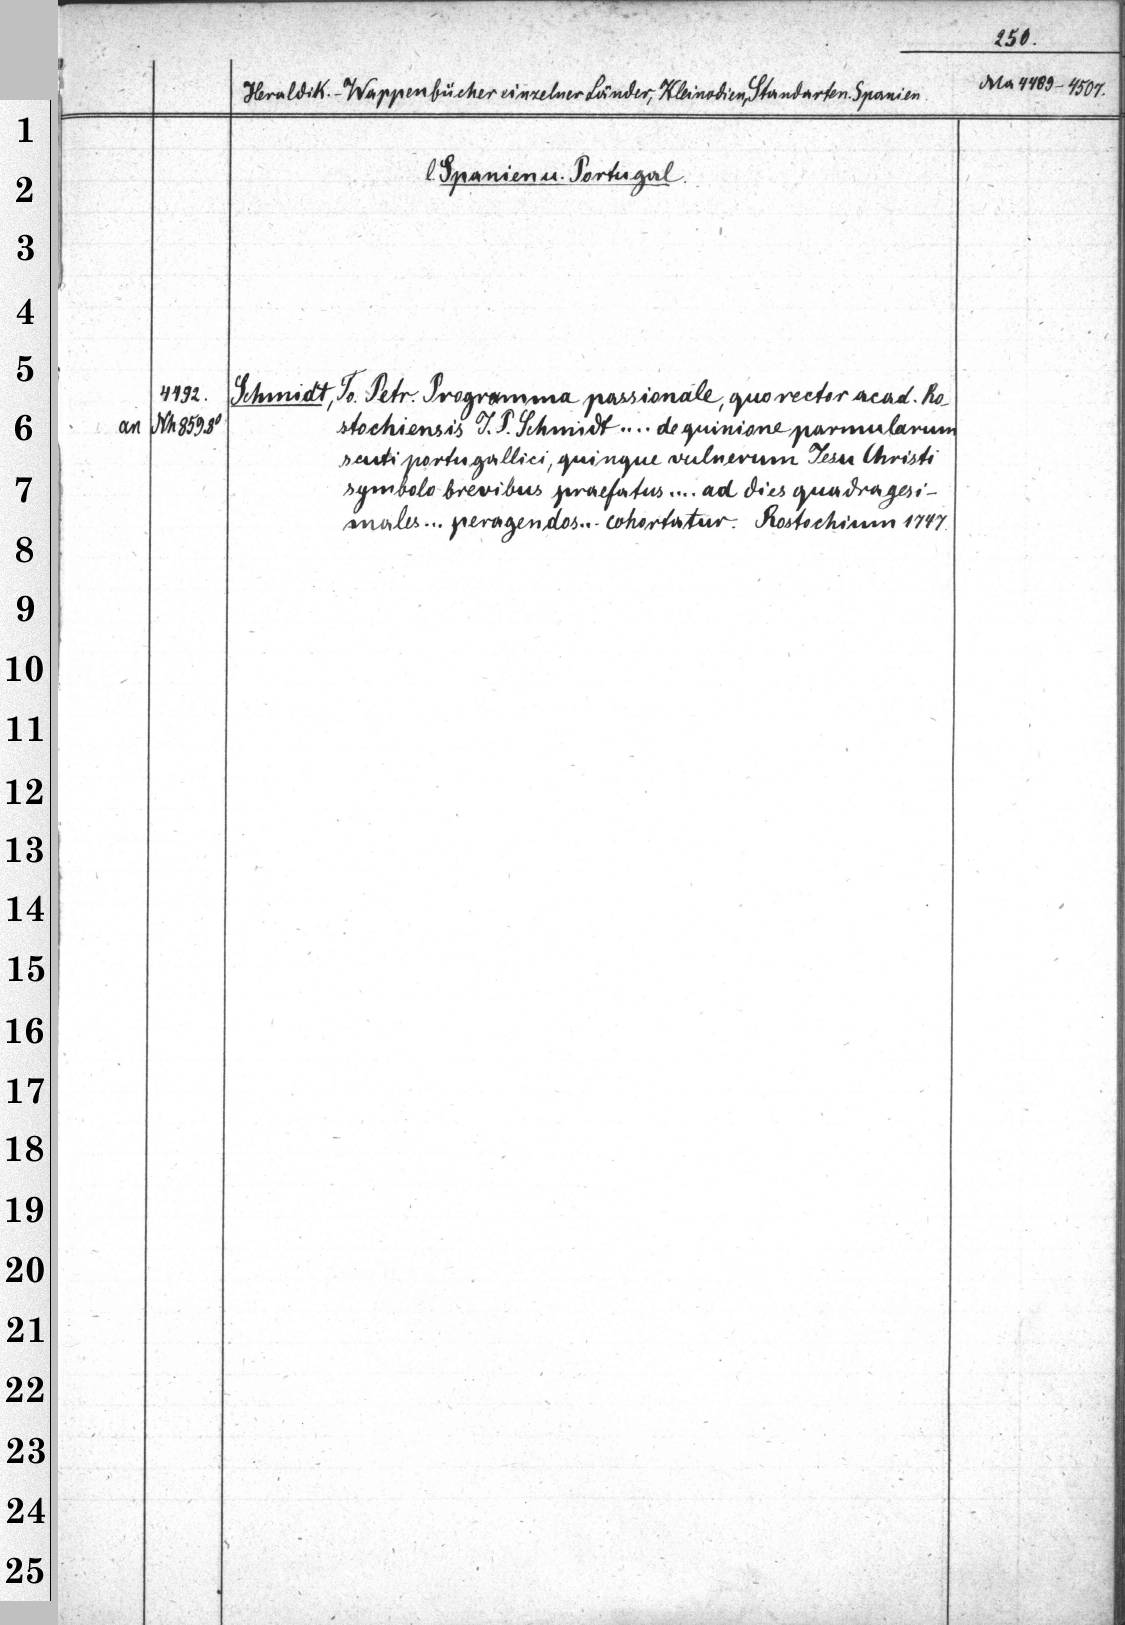 250.
Heraldik. - Wappenbücher einzelner Länder, Kleinodien, Standarten. Spanien.
Ma 4489-4507.
l Spanien u. Portugal.
4492. Schmidt, Jo. Petr. Programma passionale, quo rector acad. Ro-
an Nh 859.8° stochiensis J. P. Schmidt .... de quinione parmularum
scuti portugallici, quinque vulnerum Jesu Christi
symbolo brevibus praefatus .... ad dies quadragesi-
males ... peragendos... cohortatur. Rostochium 1747.
1
2
3
4
5
6
7
8
9
10
11
12
13
14
15
16
17
18
19
20
21
22
23
24
25